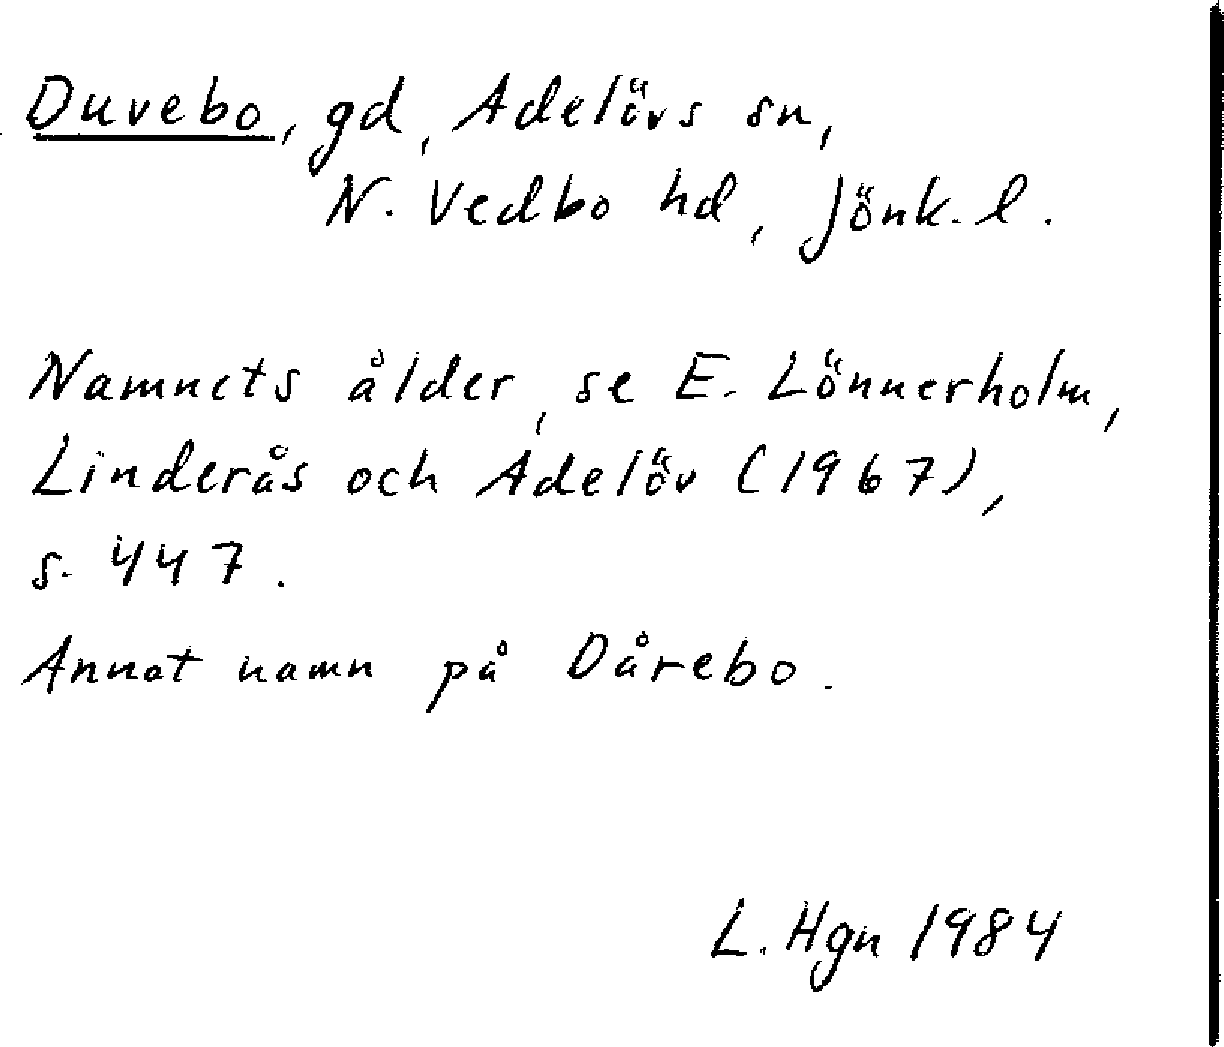 Duvebo, gd, Adelövs sn,
N. Vedbo hd, Jönk. l.
Namnets ålder, se E. Lönnerholm,
Linderås och Adelöv (1967),
s. 447.
Annat namn på Dårebo.
L. Hgn 1984